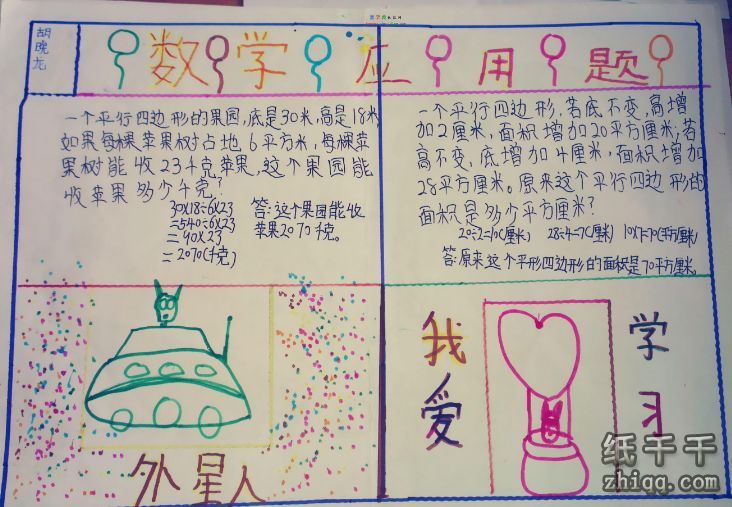 胡晓龙
数学应用题
一个平行四边形的果园,底是30米,高是18米
如果每棵苹果树占地6平方米,每棵苹
果树能收23千克苹果,这个果园能
收苹果多少千克?
30×18÷6×23
=540÷6×23
=90×23
=2070(千克)
答:这个果园能收
苹果2070千克。
一个平行四边形,若底不变,高增
加2厘米,面积增加20平方厘米,若
高不变,底增加4厘米,面积增加
28平方厘米。原来这个平行四边形的
面积是多少平方厘米?
20÷2=10(厘米) 28÷4=7(厘米) 10×7=70(平方厘米)
答:原来这个平形四边形的面积是70平方厘米。
外星人
我爱
学习
纸千千
zhiqq.com